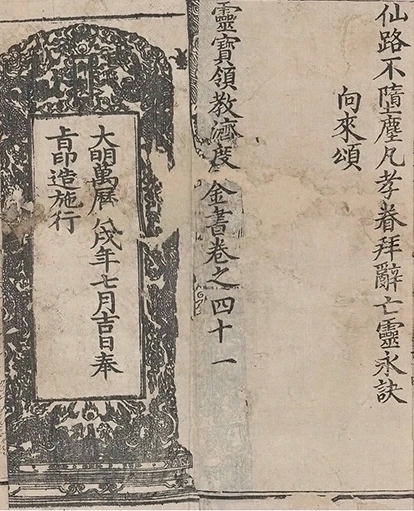 仙路不墮塵凡孝眷拜辭亡靈永訣
向來頌
靈寶領教濟度金書卷之四十一
大明萬曆戌年七月吉日奉
旨印造施行